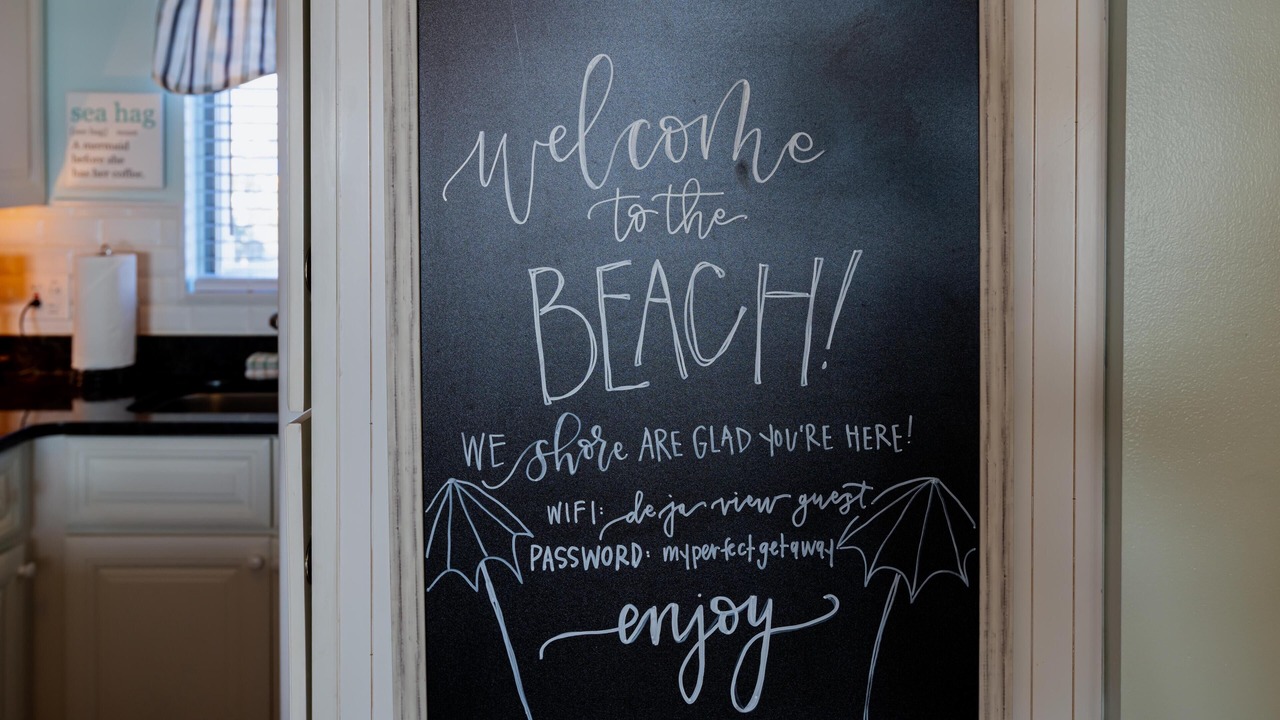 sea hag
(see hag) noun
A mermaid
before she
has her coffee.
welcome
to the
BEACH!
WE shore ARE GLAD YOU'RE HERE!
WIFI: deja view guest
PASSWORD: myperfectgetaway
enjoy